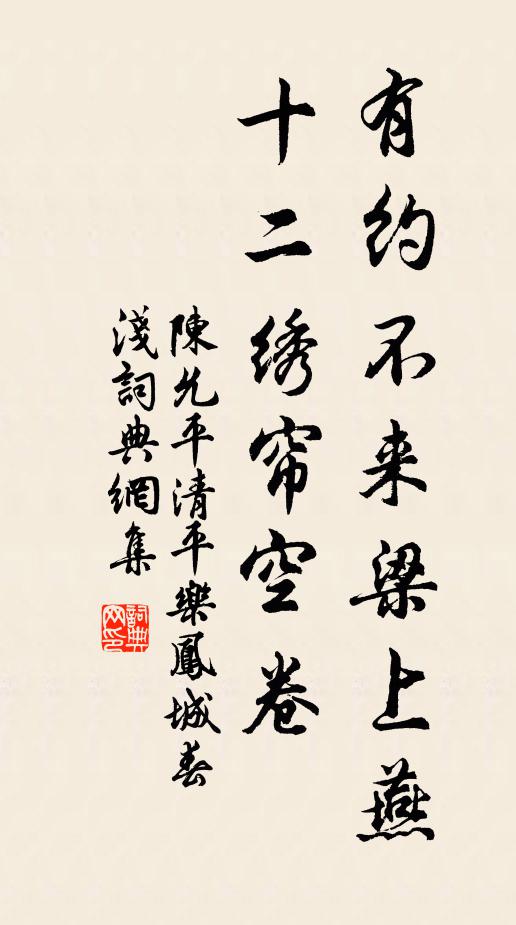 有约不来梁上燕
十二绣帘空卷
陳允平清平樂鳳城春
淺詞典網集
詞典网印